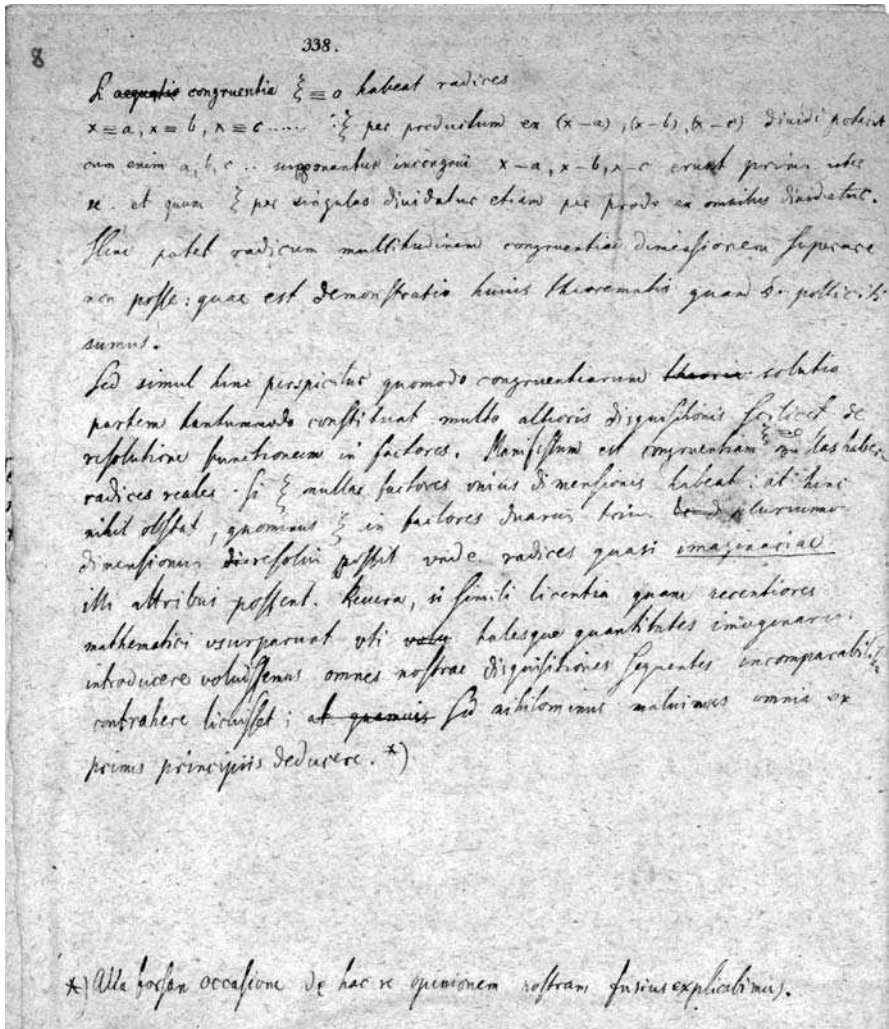 8
338.
Si aequatio congruentia ξ ≡ 0 habeat radices
x ≡ a, x ≡ b, x ≡ c ..... ξ per productum ex (x − a), (x − b), (x − c) dividi poterit
cum enim a, b, c .. supponantur incongrui x − a, x − b, x − c erunt primi inter
se. et quum ξ per singulos diuidatur etiam per prod. ex omnibus diuidetur.
Hinc patet radicum multitudinem congruentiae dimensionem superare
non posse: quae est demonstratio huius theorematis quam polliciti
sumus.
Sed simul hinc perspicitur quomodo congruentiarum theoria solutio
partem tantummodo constituat multo altioris disquisitionis scilicet de
resolutione functionum in factores. Manifestum est congruentiam nullas habere
radices reales si ξ nullos factores unius dimensionis habeat; at hinc
nihil obstat, quominus ξ in factores duarum trium pluriumve
dimensionum resolui possit unde radices quasi imaginariae
illi attribui possent. Reuera, si simili licentia quam recentiores
mathematici usurparunt uti talesque quantitates imaginarias
introducere voluissemus omnes nostrae disquisitiones sequentes incomparabiliter
contrahere licuisset; at quamuis sed nihilominus maluimus omnia ex
primis principiis deducere. *)
*) Alia forsan occasione de hac re opinionem nostram fusius explicabimus.